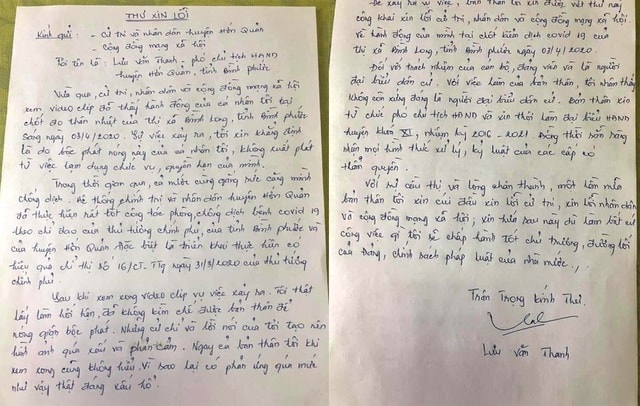 THƯ XIN LỖI
Kính gửi: - Cử tri và nhân dân huyện Hớn Quản
- Cộng đồng mạng xã hội
Tôi tên là: Lưu Văn Thanh, phó chủ tịch HĐND
huyện Hớn Quản, tỉnh Bình Phước
Vừa qua, cử tri, nhân dân và cộng đồng mạng xã hội
xem video clip đã thấy hành động của cá nhân tôi tại
chốt đo thân nhiệt của thị xã Bình Long, tỉnh Bình Phước
sáng ngày 03/4/2020. Sự việc xảy ra, tôi xin khẳng định
là do bộc phát nóng nảy của cá nhân tôi, không xuất phát
từ việc lạm dụng chức vụ, quyền hạn của mình.
Trong thời gian qua, cả nước cùng gắng sức căng mình
chống dịch. Hệ thống chính trị và nhân dân huyện Hớn Quản
đã thực hiện rất tốt công tác phòng, chống dịch bệnh covid 19
theo chỉ đạo của thủ tướng chính phủ, của tỉnh Bình Phước và
của huyện Hớn Quản. Đặc biệt là triển khai thực hiện có
hiệu quả chỉ thị số 16/CT-TTg ngày 31/3/2020 của thủ tướng
chính phủ.
Sau khi xem xong video clip vụ việc xảy ra. Tôi thật
lấy làm hối hận, đã không kìm chế được bản thân để
nóng giận bộc phát. Những cử chỉ và lời nói của tôi tạo nên
hình ảnh quá xấu và phản cảm. Ngay cả bản thân tôi khi
xem xong cũng không hiểu. Vì sao lại có phản ứng quá mức
như vậy thật đáng xấu hổ.
Để xảy ra sự việc, bản thân tôi xin được viết thư này
công khai xin lỗi cử tri, nhân dân và cộng đồng mạng xã hội
về hành động của mình tại chốt kiểm dịch covid 19 của
thị xã Bình Long, tỉnh Bình Phước ngày 03/4/2020.
Đối với trách nhiệm của cán bộ, đảng viên và là người
đại biểu dân cử. Với việc làm của bản thân, tôi nhận thấy
không còn xứng đáng là người đại biểu dân cử. Bản thân xin
từ chức phó chủ tịch HĐND và xin thôi làm đại biểu HĐND
huyện khóa XI, nhiệm kỳ 2016 - 2021. Đồng thời sẵn sàng
nhận mọi hình thức xử lý, kỷ luật của các cấp có
thẩm quyền.
Với sự cầu thị và lòng chân thành, một lần nữa
bản thân tôi xin cúi đầu xin lỗi cử tri, xin lỗi nhân dân
và cộng đồng mạng xã hội, xin hứa sau này dù làm bất cứ
công việc gì tôi sẽ chấp hành tốt chủ trương, đường lối
của Đảng, chính sách pháp luật của nhà nước./.
Trân Trọng kính Thư.
Lưu Văn Thanh